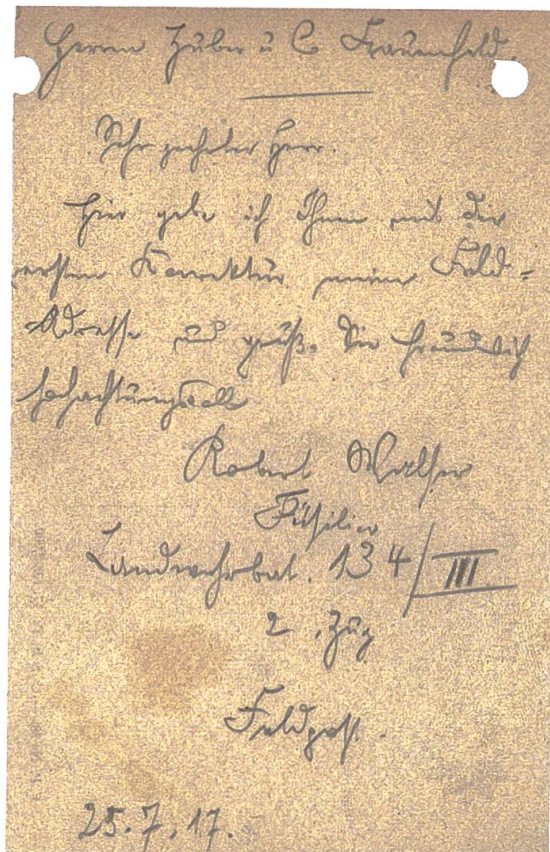 Herrn Huber u C Frauenfeld.
Sehr geehrter Herr.
Hier gebe ich Ihnen mit der
ersten Korrektur meine Feld-
Adresse und grüße Sie freundlich
hochachtungsvoll
Robert Walser
Füsilier
Landwehrbat. 134/III
2. Zug
Feldpost.
25.7.17.